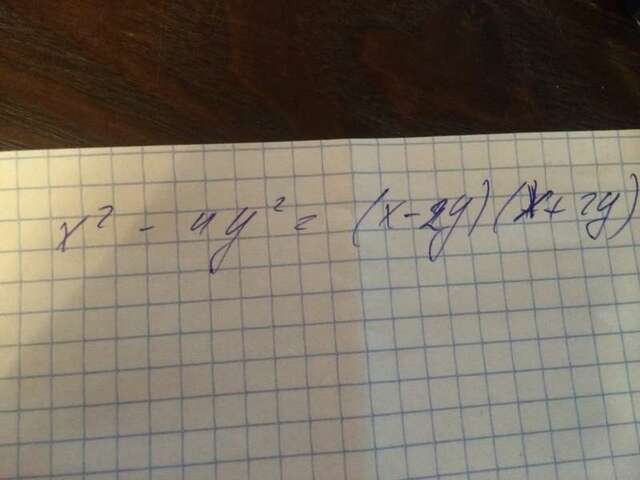 x² - 4y² = (x-2y)(x+2y)